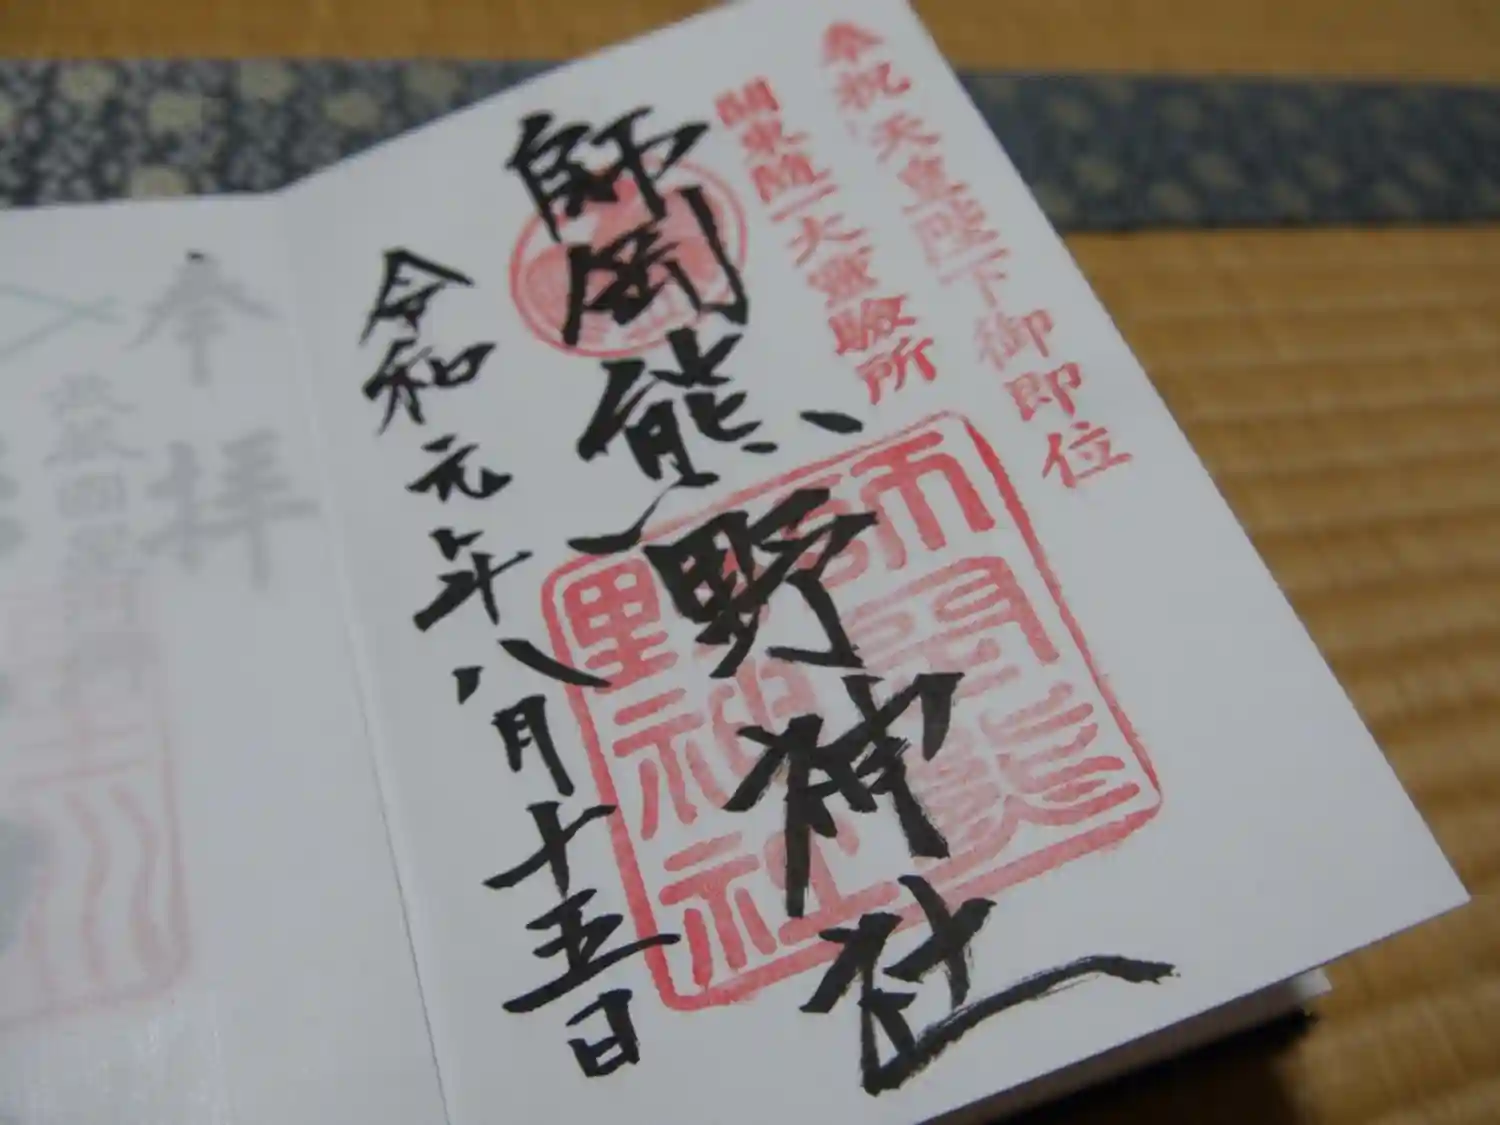 奉祝天皇陛下御即位
関東随一大霊験所
師岡熊野神社
師岡熊野神社
令和元年八月十五日
奉拝